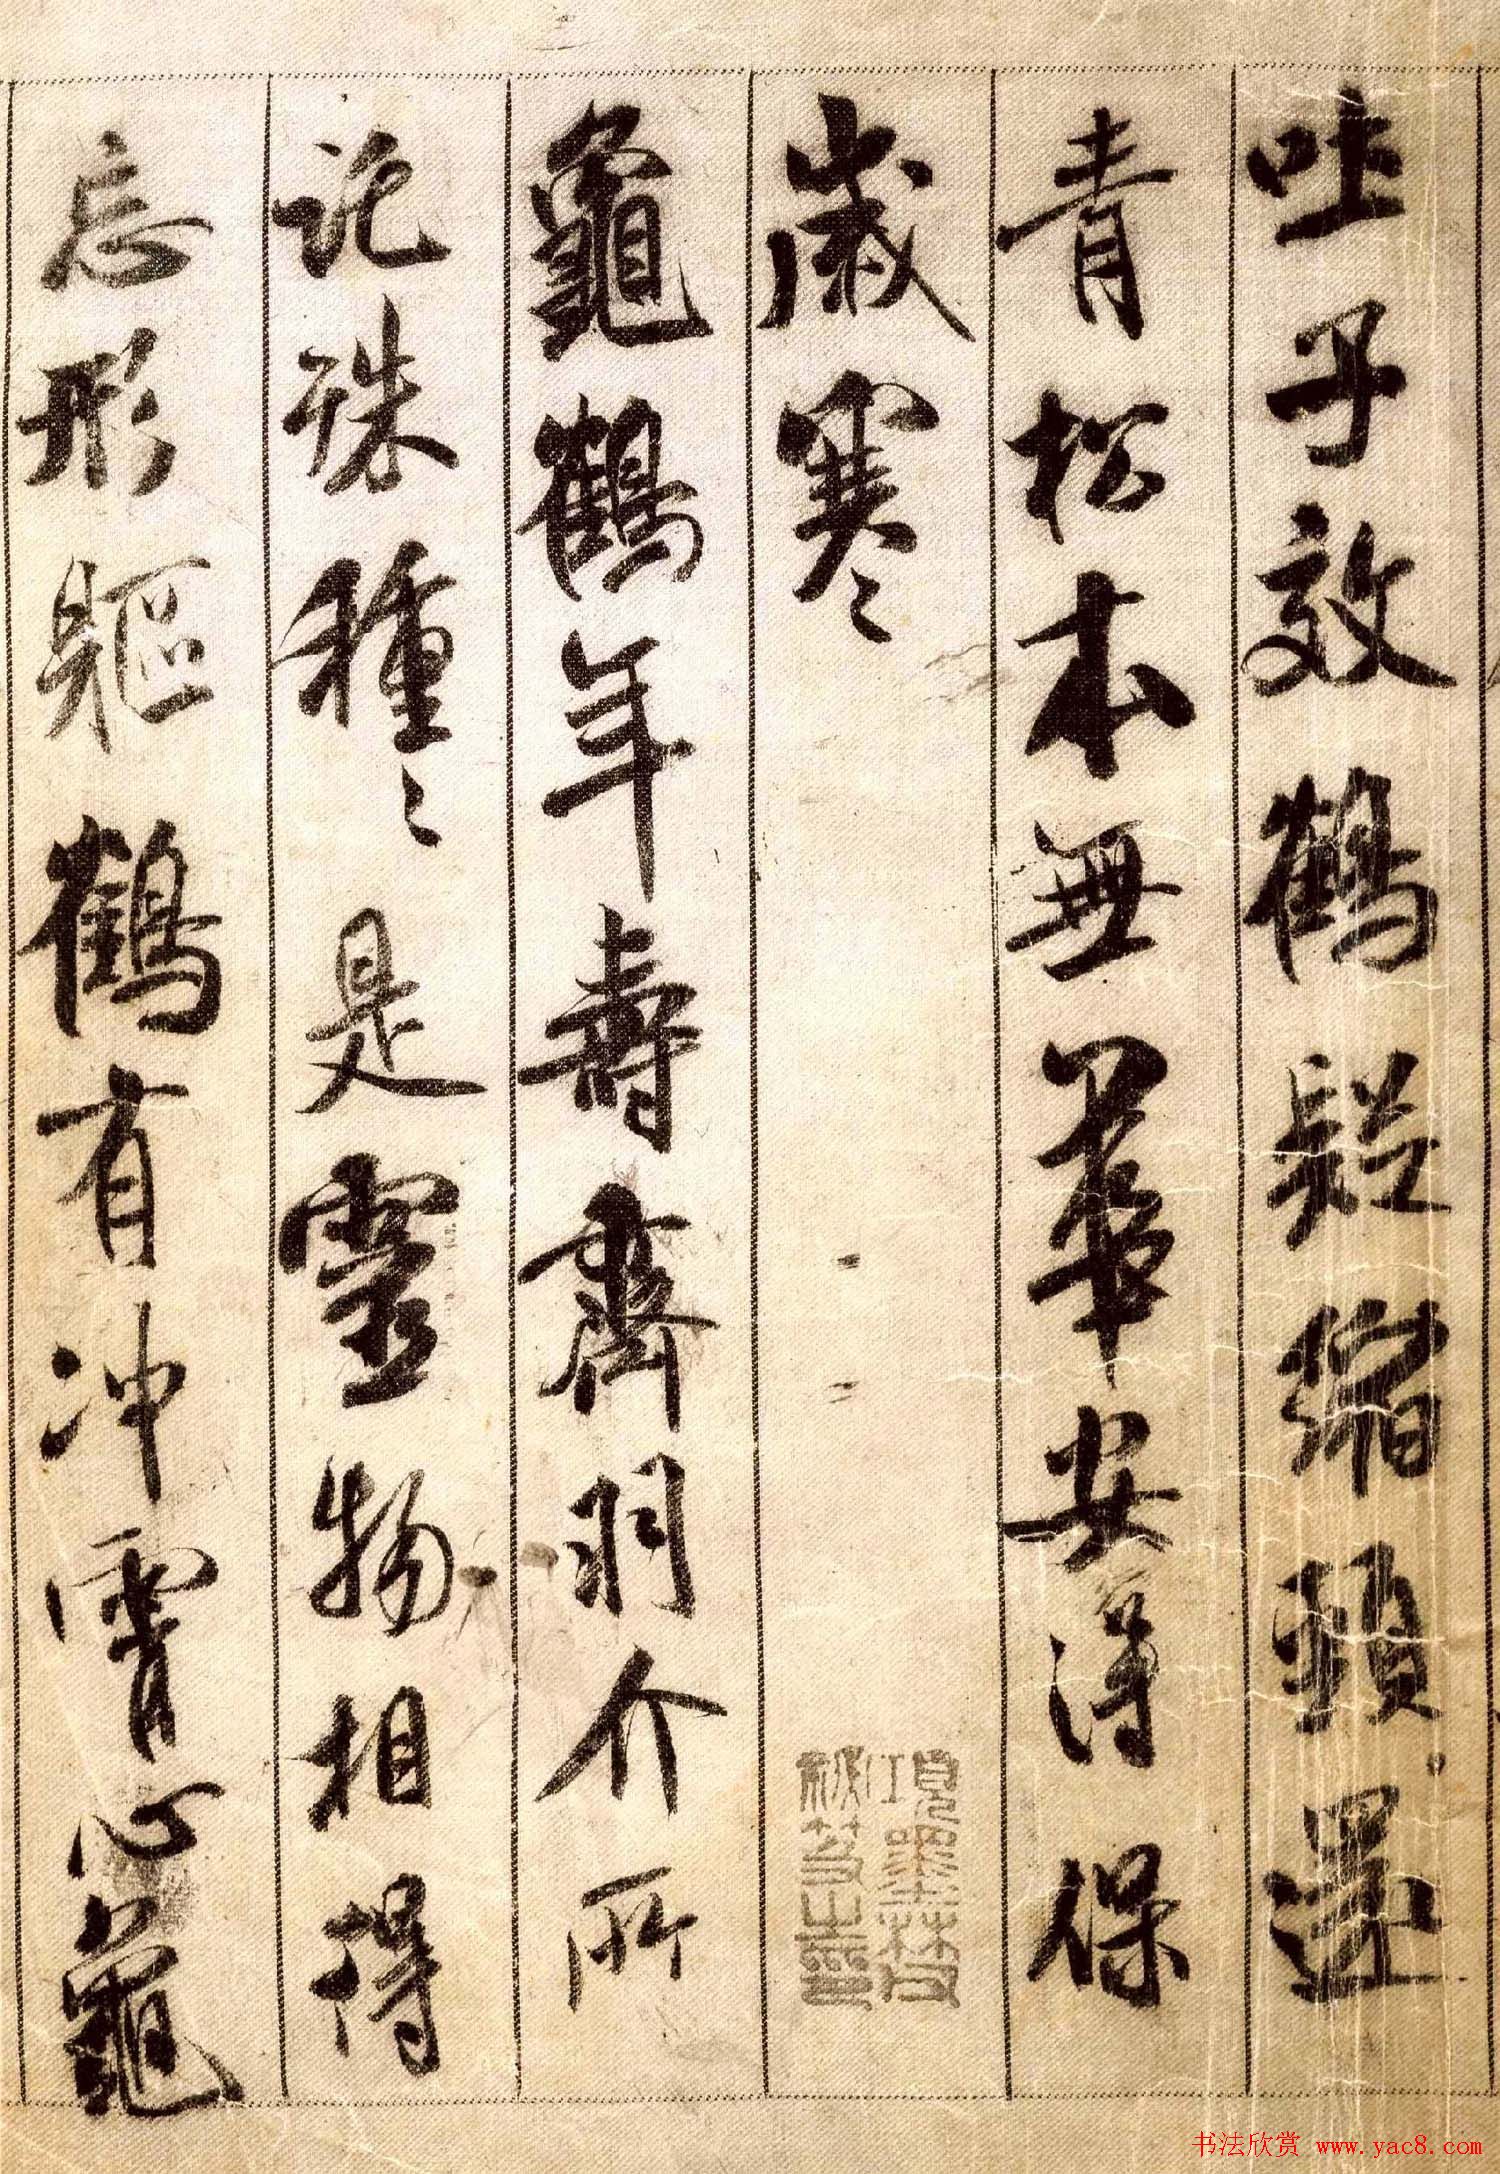 吐子效鶴疑縮頸還
青松本無華安得保
歲寒
龜鶴年壽齊羽介所
託殊種〻是靈物相得
忘形軀鶴有冲霄心龜
項墨林父
祕笈之印
书法欣赏 www.yac8.com